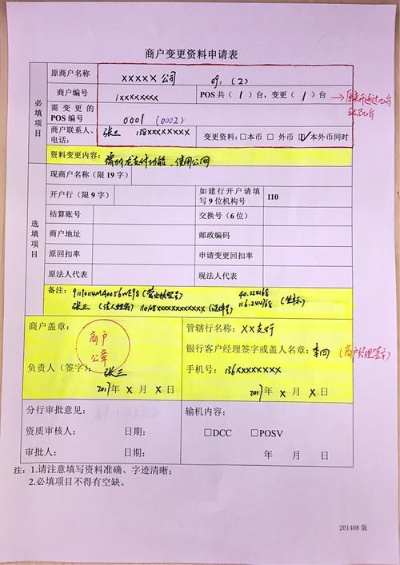 商户变更资料申请表
必填项目
原商户名称 XXXXX 公司
商户编号 1xxxxxxxx POS共（1）台，变更（1）台
需变更的POS编号 0001 (0002)
商户联系人、电话： 张三 138xxxxxxxx 变更资料：□本币 □外币 ☑本外币同时
资料变更内容：
选填项目
现商户名称（限19字）
开户行（限9字） 如建行开户请填写9位机构号 110
结算账号 交换号（6位）
商户地址 邮政编码
原回扣率 申请变更回扣率
原法人代表 现法人代表
备注：
张三
商户盖章： 管辖行名称：XX支行
商户公章
银行客户经理签字或盖人名章：李四（客户经理签字）
负责人（签字）：张三 手机号：136xxxxxxxx
2017年 X 月 X 日 2017年 X 月 X 日
分行审批意见： 输机内容：
资质审核人： 日期： □DCC □POSV
审批人： 日期： 年 月 日
注：1.请注意填写资料准确、字迹清晰；
2.必填项目不得有空缺。
201408 版